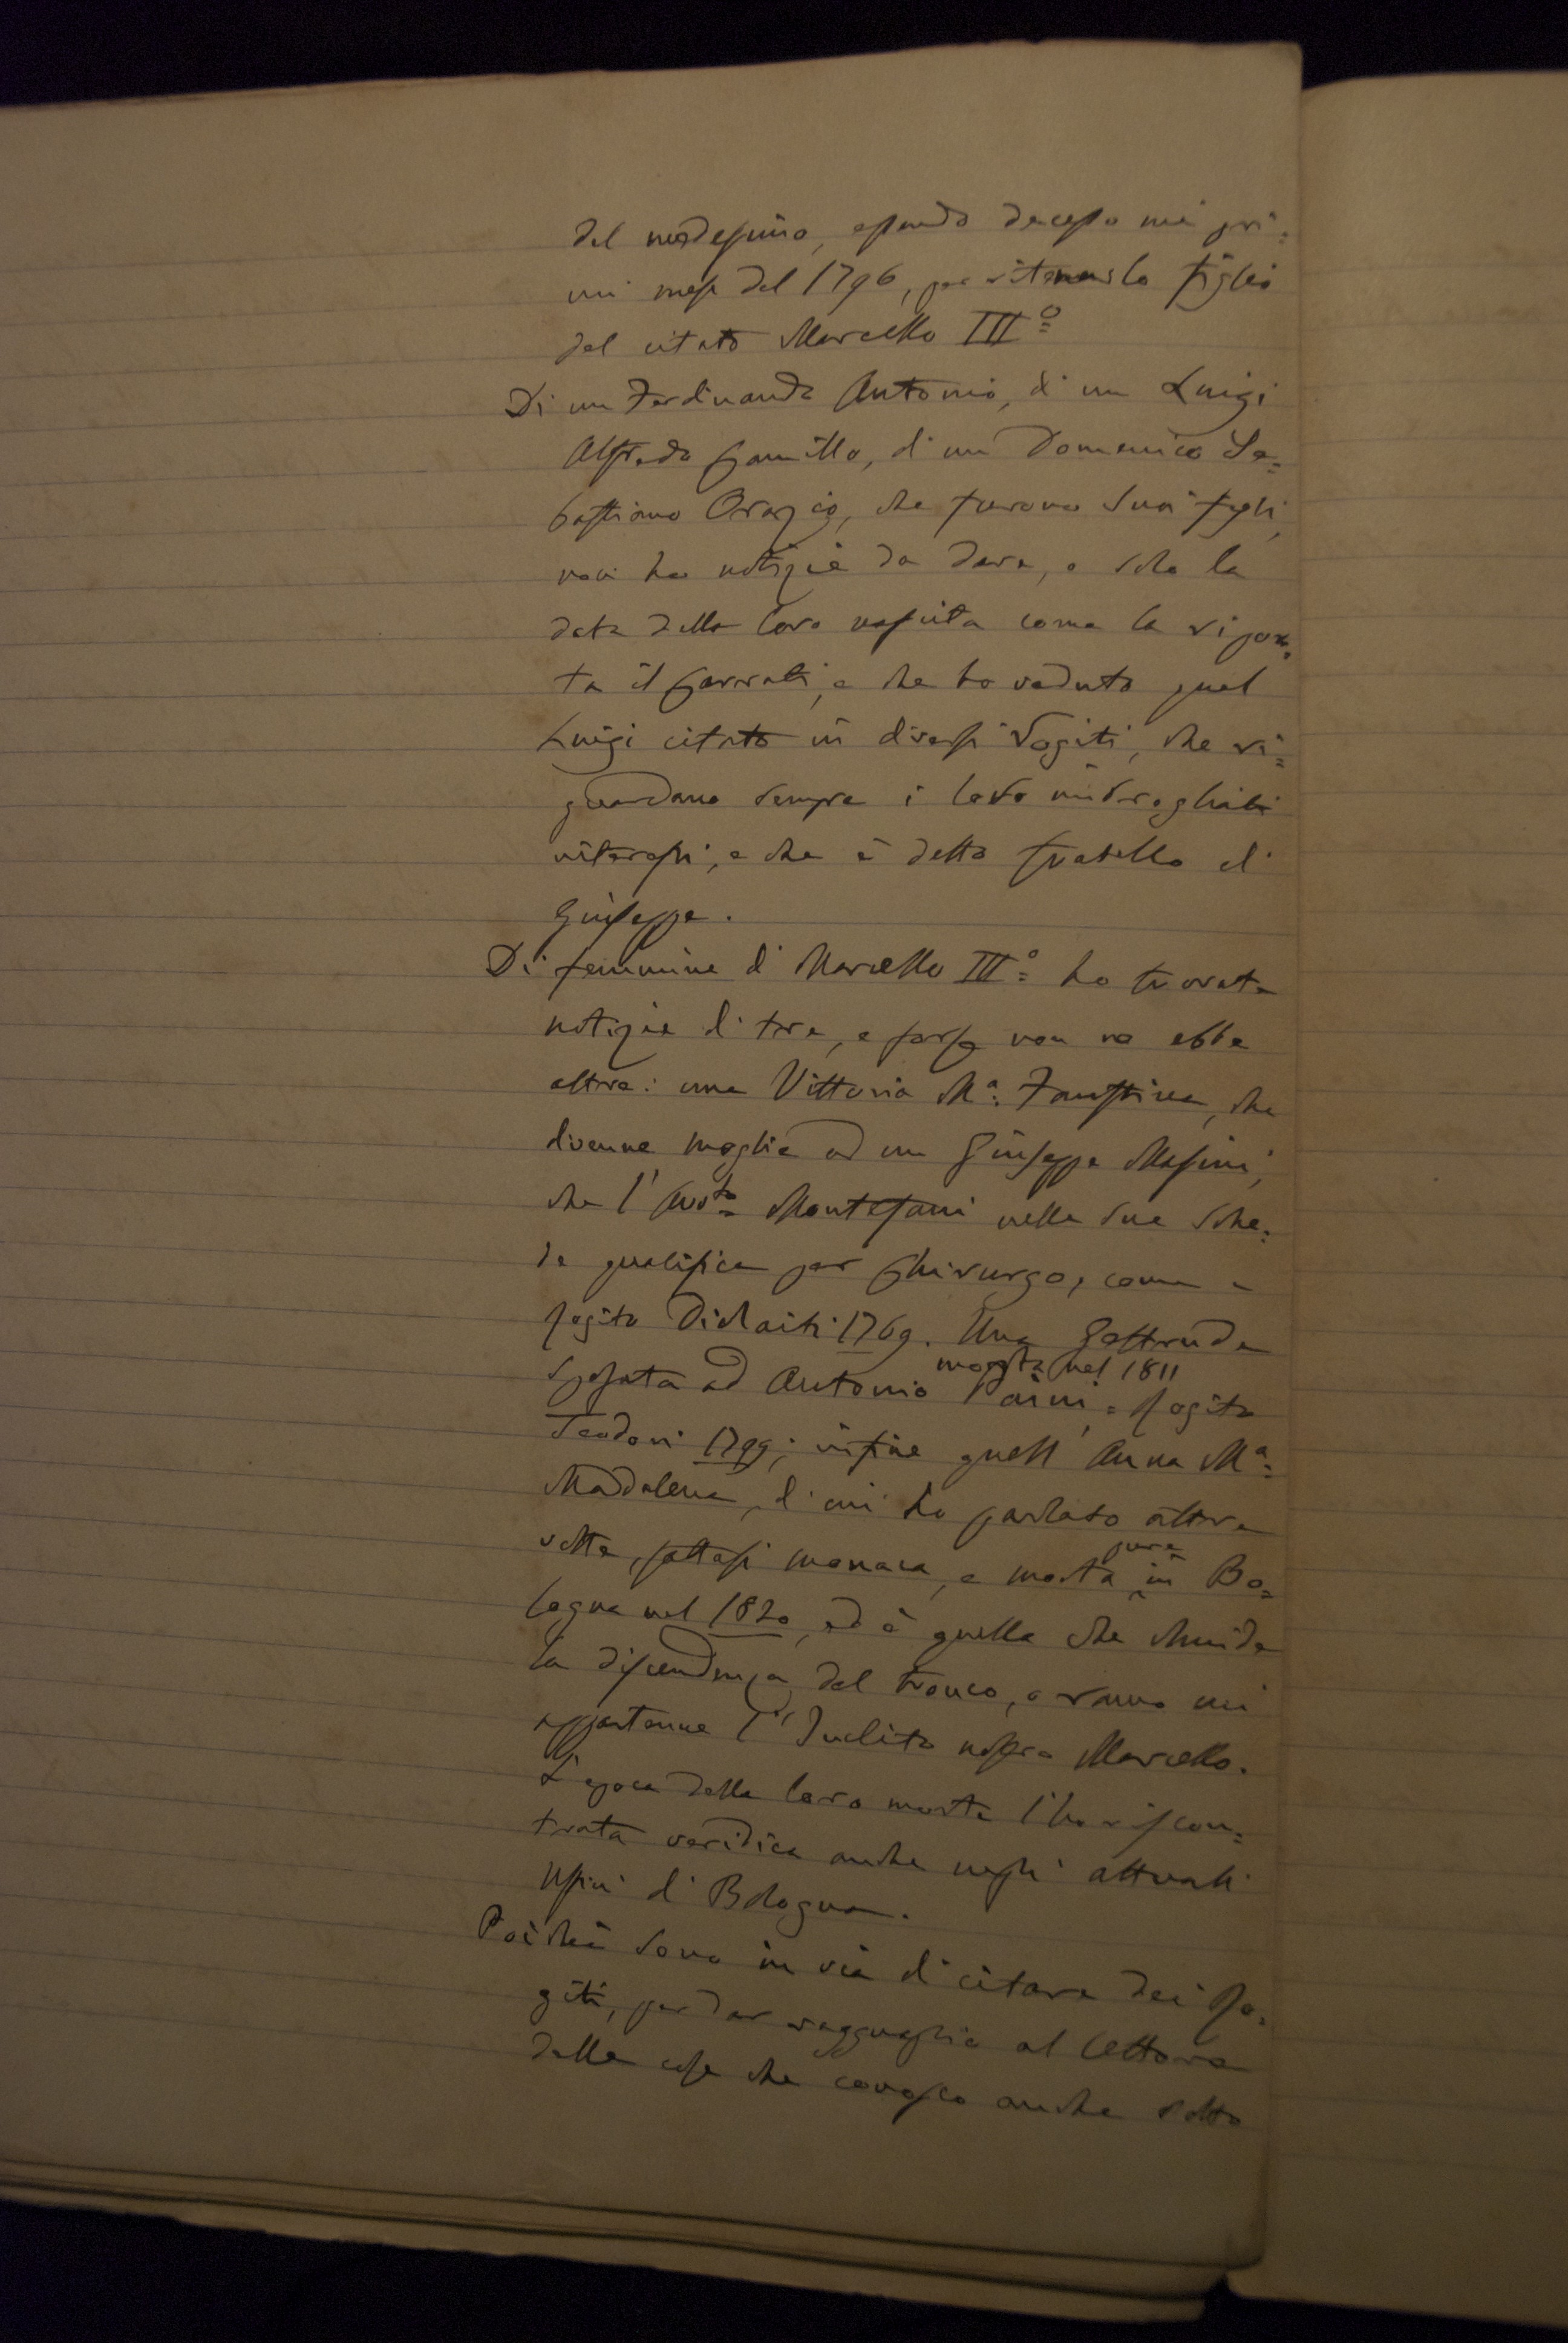 del medesimo, essendo decesso nei pri=
mi mesi del 1796, per ritenerlo figlio
del citato Marcello IIIº
Di un Ferdinando Antonio, di un Luigi
Alfredo Camillo, di un Domenico Se=
bastiano Orazio, che furono suoi figli,
non ho notizie da dare, o solo la
data della loro nascita come la ripor=
ta il Carrati, e che ho veduto quel
Luigi citato in diversi Rogiti, che ri=
guardano sempre i loro
interessi, e che è detto fratello di
Giuseppe.
Di femmine di Marcello IIIº ho trovate
notizie di tre, e forse non ne ebbe
altre: una Vittoria Mª Faustina, che
divenne moglie ad un Giuseppe Masini,
che l'Avto Montefani nelle sue Sche=
de qualifica per Chirurgo, come a
rogito 1769. Una Geltrude
morta nel 1811
sposata ad Antonio Parini = Rogito
Teodori 1799; infine quell'Anna Mª
Maddalena, di cui ho parlato altre
volte, fattasi monaca, e morta pure in Bo=
logna nel 1820, ed è quella che chiude
la discendenza del tronco, o ramo cui
appartenne l'Inclito nostro Marcello.
L'epoca della loro morte l'ho riscon=
trata veridica anche negli attuali
Uffici di Bologna.
Poichè sono in via di citare dei Ro=
giti, per dar ragguaglio al lettore
delle cose che conosco anche sotto